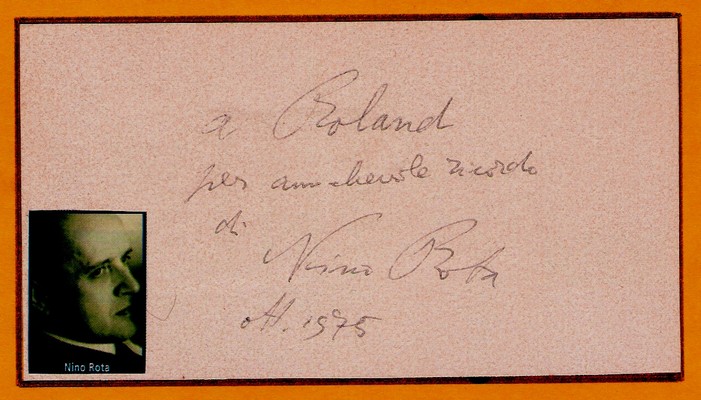 a Roland
per amichevole ricordo
di
Nino Rota
ott. 1975
Nino Rota